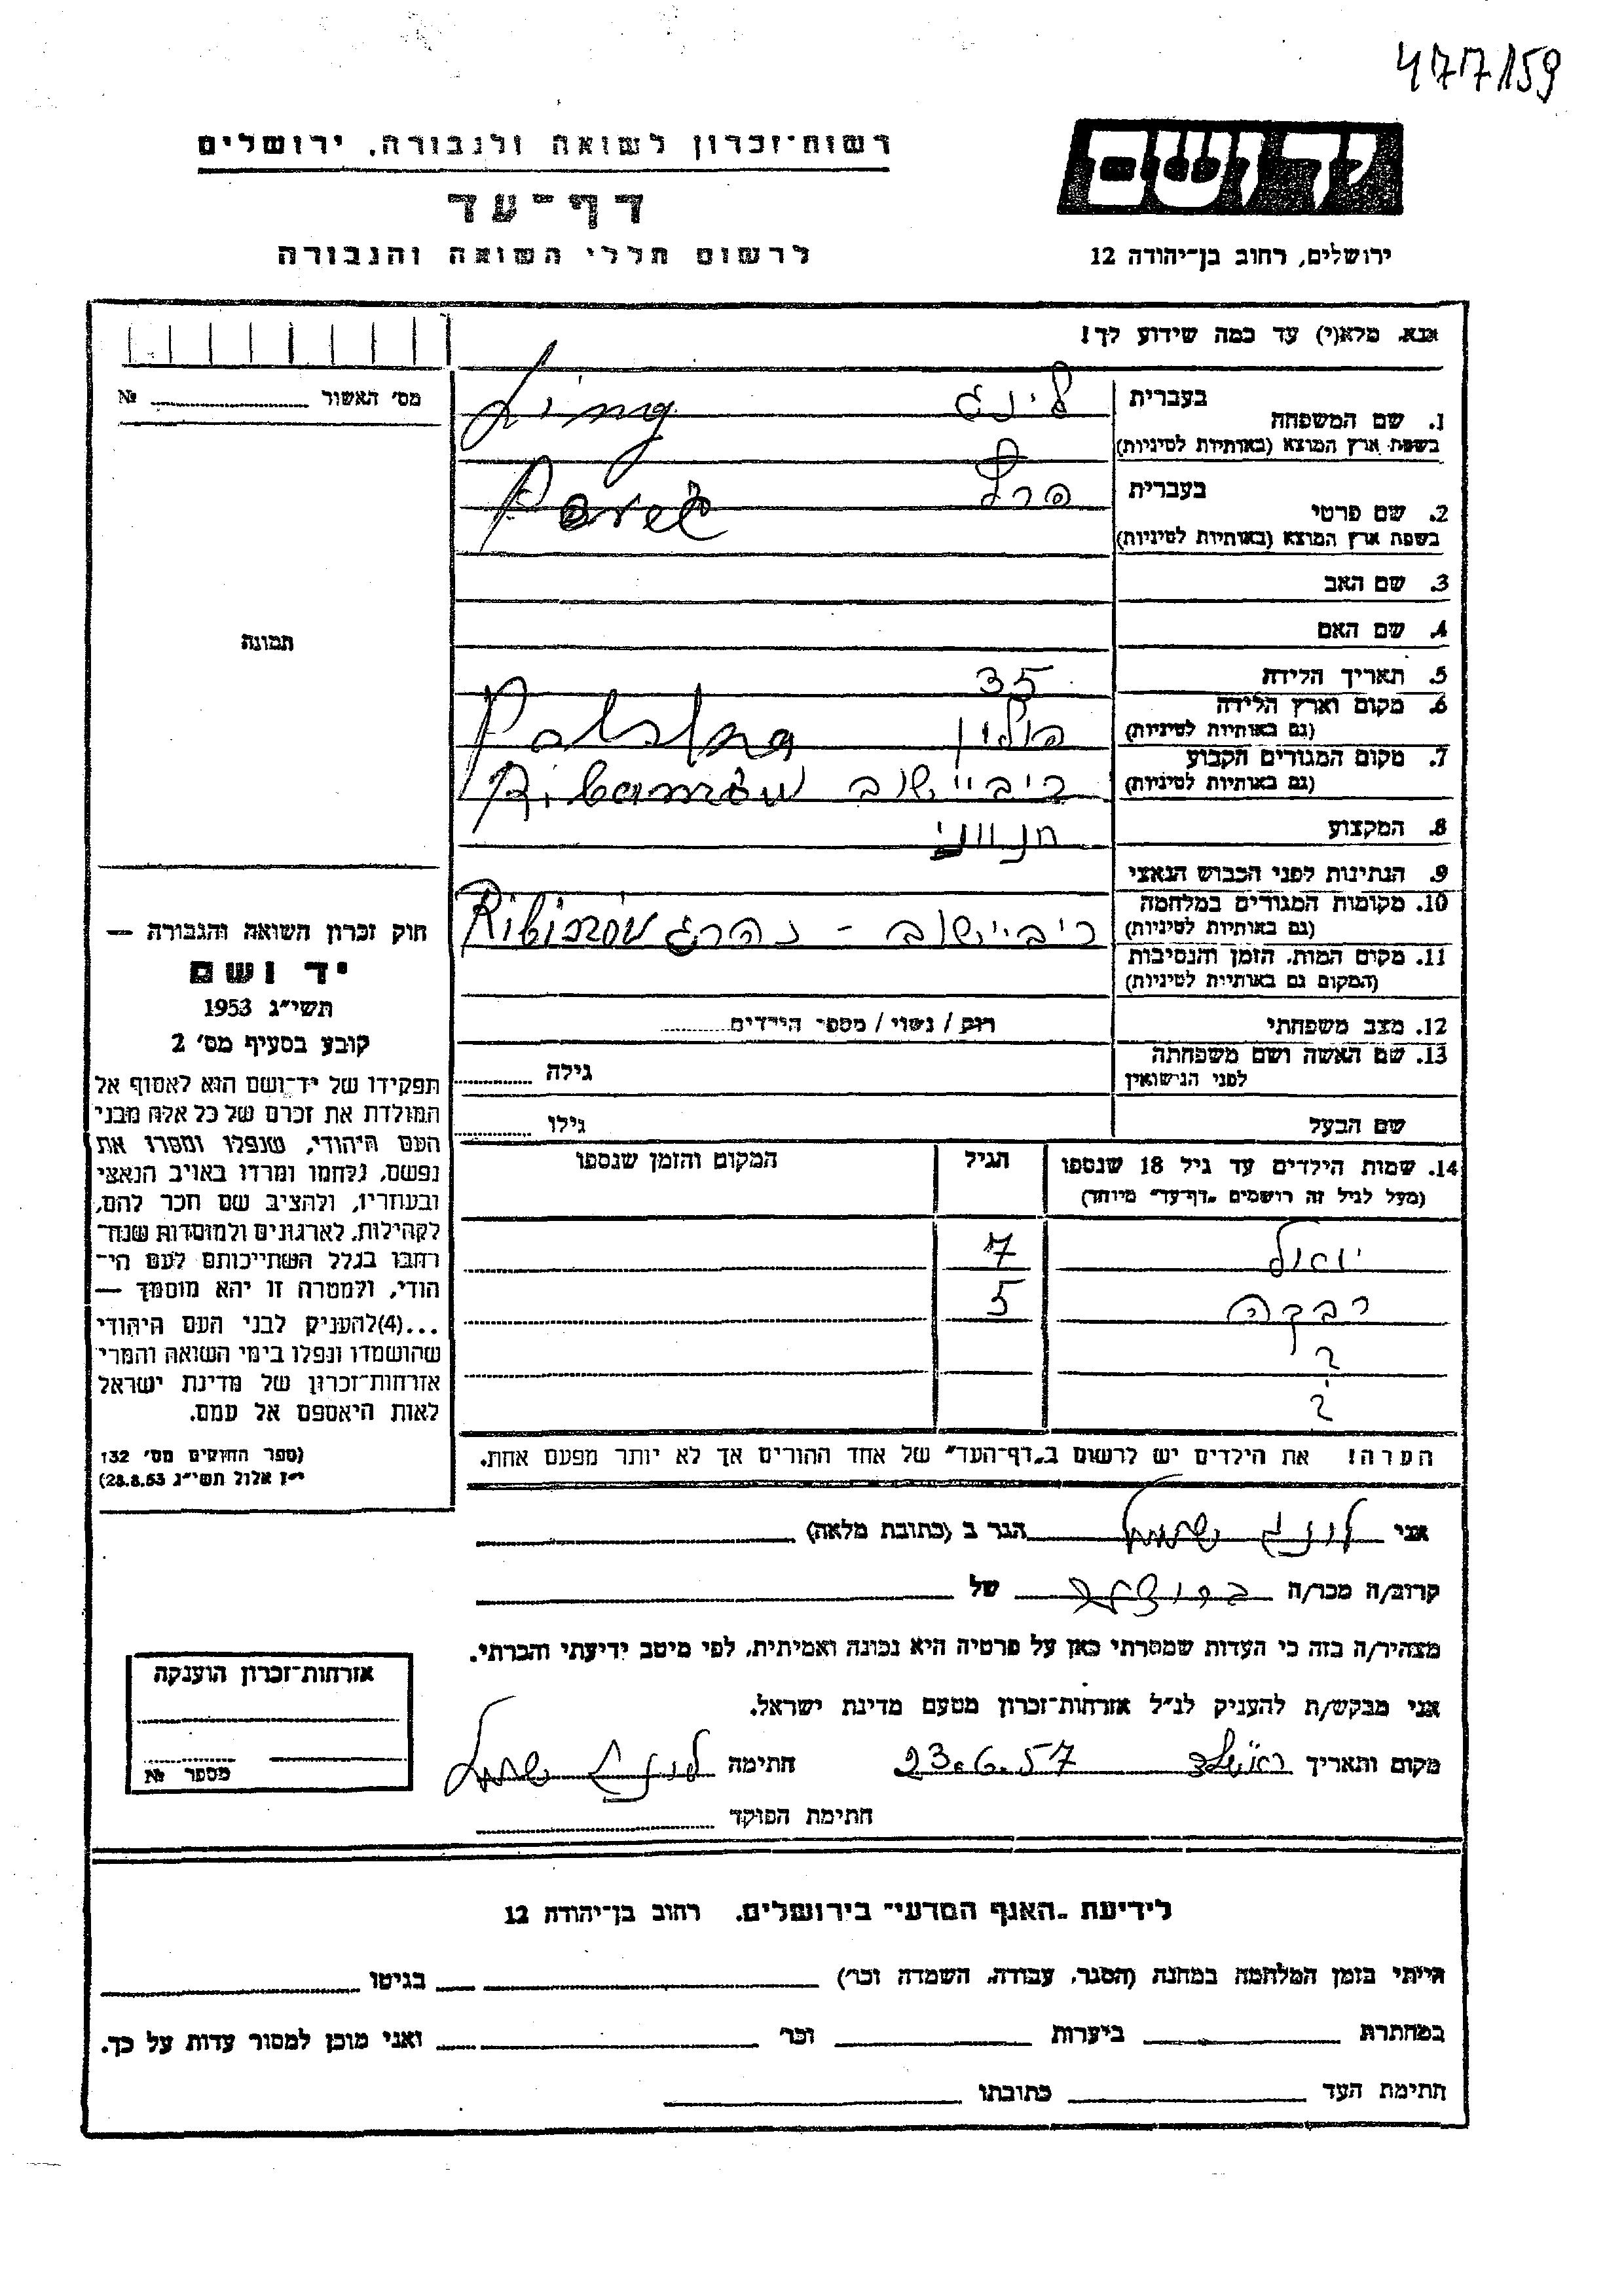 477/159
רשות־זכרון לשואה ולגבורה, ירושלים
דף־עד
לרשום חללי השואה והגבורה
יד ושם
ירושלים, רחוב בן־יהודה 12
אנא, מלא(י) עד כמה שידוע לך!
מס׳ האשור №
1. שם המשפחה
בעברית לינג
בשפת ארץ המוצא (באותיות לטיניות) Ling
2. שם פרטי
בעברית פרל
בשפת ארץ המוצא (באותיות לטיניות)
3. שם האב
4. שם האם
תמונה
5. תאריך הלידה 35
6. מקום וארץ הלידה
(גם באותיות לטיניות) פולין Polska
7. מקום המגורים הקבוע
(גם באותיות לטיניות)
8. המקצוע חנווני
9. הנתינות לפני הכבוש הנאצי
10. מקומות המגורים במלחמה
(גם באותיות לטיניות) - נהרג
11. מקום המות, הזמן והנסיבות
(המקום גם באותיות לטיניות)
12. מצב משפחתי רוק / נשוי / מספר הילדים
13. שם האשה ושם משפחתה
לפני הנישואין גילה
שם הבעל גילו
14. שמות הילדים עד גיל 18 שנספו הגיל המקום והזמן שנספו
(מעל לגיל זה רושמים „דף־עד״ מיוחד)
יואל 7
רבקה 5
?
?
הערה! את הילדים יש לרשום ב„דף־העד״ של אחד ההורים אך לא יותר מפעם אחת.
חוק זכרון השואה והגבורה —
יד ושם
תשי״ג 1953
קובע בסעיף מס׳ 2
תפקידו של יד־ושם הוא לאסוף אל
המולדת את זכרם של כל אלה מבני
העם היהודי, שנפלו ומסרו את
נפשם, נלחמו ומרדו באויב הנאצי
ובעוזריו, ולהציב שם וזכר להם,
לקהילות, לארגונים ולמוסדות שנח־
רבו בגלל השתייכותם לעם הי־
הודי, ולמטרה זו יהא מוסמך —
...(4)להעניק לבני העם היהודי
שהושמדו ונפלו בימי השואה והמרי
אזרחות־זכרון של מדינת ישראל
לאות היאספם אל עמם.
(ספר החוקים מס׳ 132
י״ז אלול תשי״ג 28.8.53)
אני לינג שמואל הגר ב (כתובת מלאה)
קרוב/ה מכר/ה של
מצהיר/ה בזה כי העדות שמסרתי כאן על פרטיה היא נכונה ואמיתית, לפי מיטב ידיעתי והכרתי.
אני מבקש/ת להעניק לנ״ל אזרחות־זכרון מטעם מדינת ישראל.
מקום ותאריך 23.6.57 חתימה לינג שמואל
חתימת הפוקד
אזרחות־זכרון הוענקה
מספר №
לידיעת „האגף המדעי״ בירושלים, רחוב בן־יהודה 12
הייתי בזמן המלחמה במחנה (הסגר, עבודה, השמדה וכו׳) בגיטו
במחתרת ביערות וכו׳ ואני מוכן למסור עדות על כך.
חתימת העד כתובתו